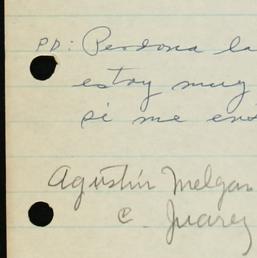 PD: Perdona la
estoy muy
si me en
Agustín Melgar
C. Juarez